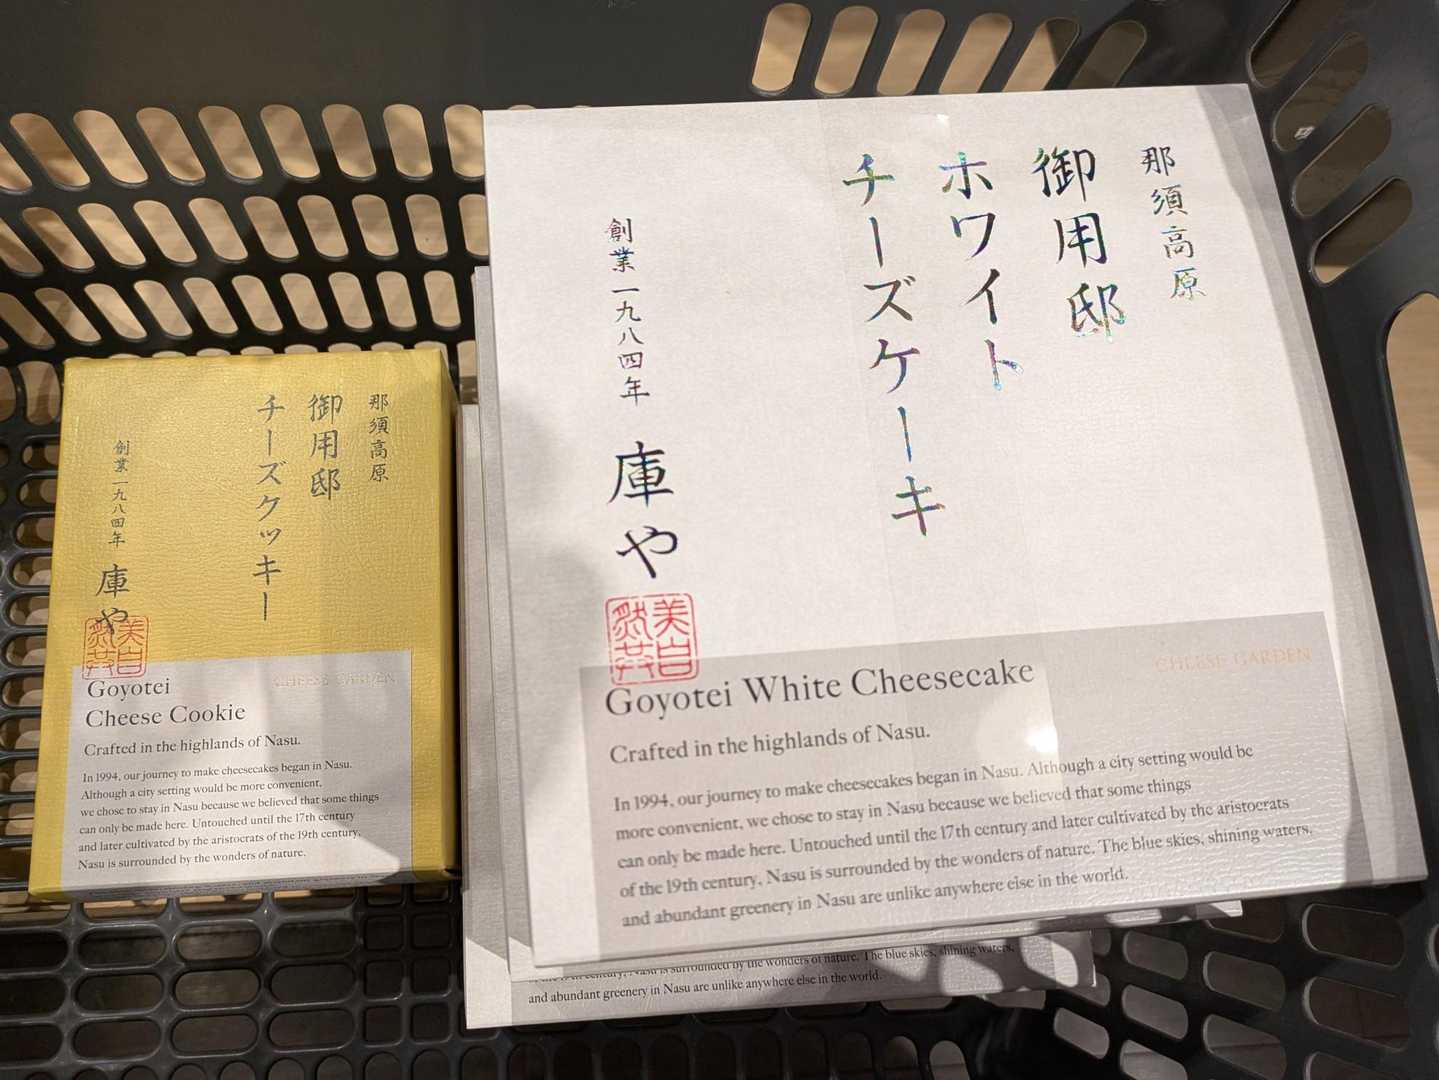 那須高原
御用邸
チーズクッキー
創業一九八四年
庫や
美白
Goyotei
Cheese Cookie
CHEESE GARDEN
Crafted in the highlands of Nasu.
In 1994, our journey to make cheesecakes began in Nasu.
Although a city setting would be more convenient,
we chose to stay in Nasu because we believed that some things
can only be made here. Untouched until the 17th century
and later cultivated by the aristocrats of the 19th century,
Nasu is surrounded by the wonders of nature.
那須高原
御用邸
ホワイト
チーズケーキ
創業一九八四年
庫や
美白
Goyotei White Cheesecake
CHEESE GARDEN
Crafted in the highlands of Nasu.
In 1994, our journey to make cheesecakes began in Nasu. Although a city setting would be
more convenient, we chose to stay in Nasu because we believed that some things
can only be made here. Untouched until the 17th century and later cultivated by the aristocrats
of the 19th century, Nasu is surrounded by the wonders of nature. The blue skies, shining waters,
and abundant greenery in Nasu are unlike anywhere else in the world.
century, Nasu is surrounded by the wonders of nature. The blue skies, shining waters,
and abundant greenery in Nasu are unlike anywhere else in the world.